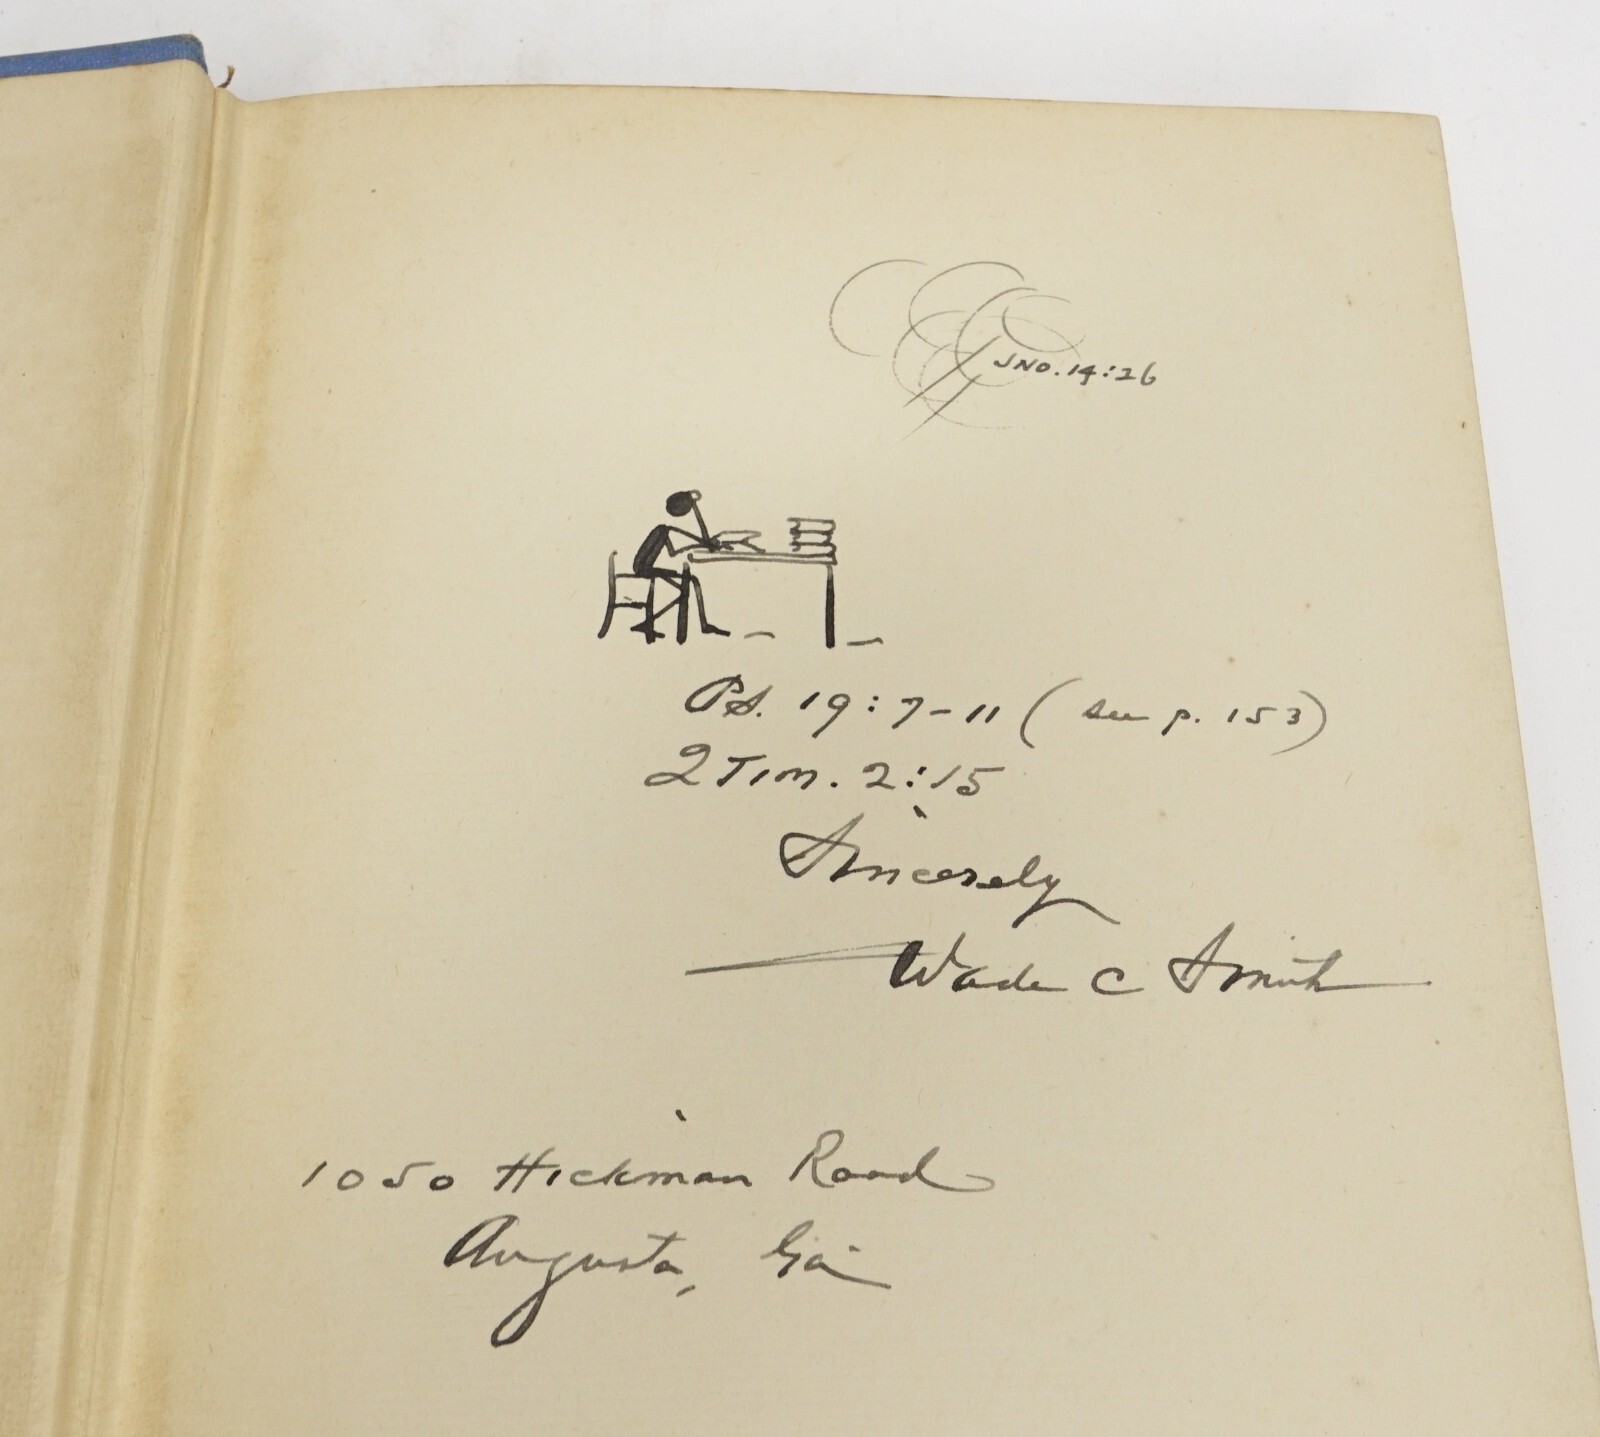 JNO. 14:26
Ps. 19:7-11 (see p. 153)
2 TIM. 2:15
Sincerely
Wade C Smith
1050 Hickman Road
Augusta, Ga